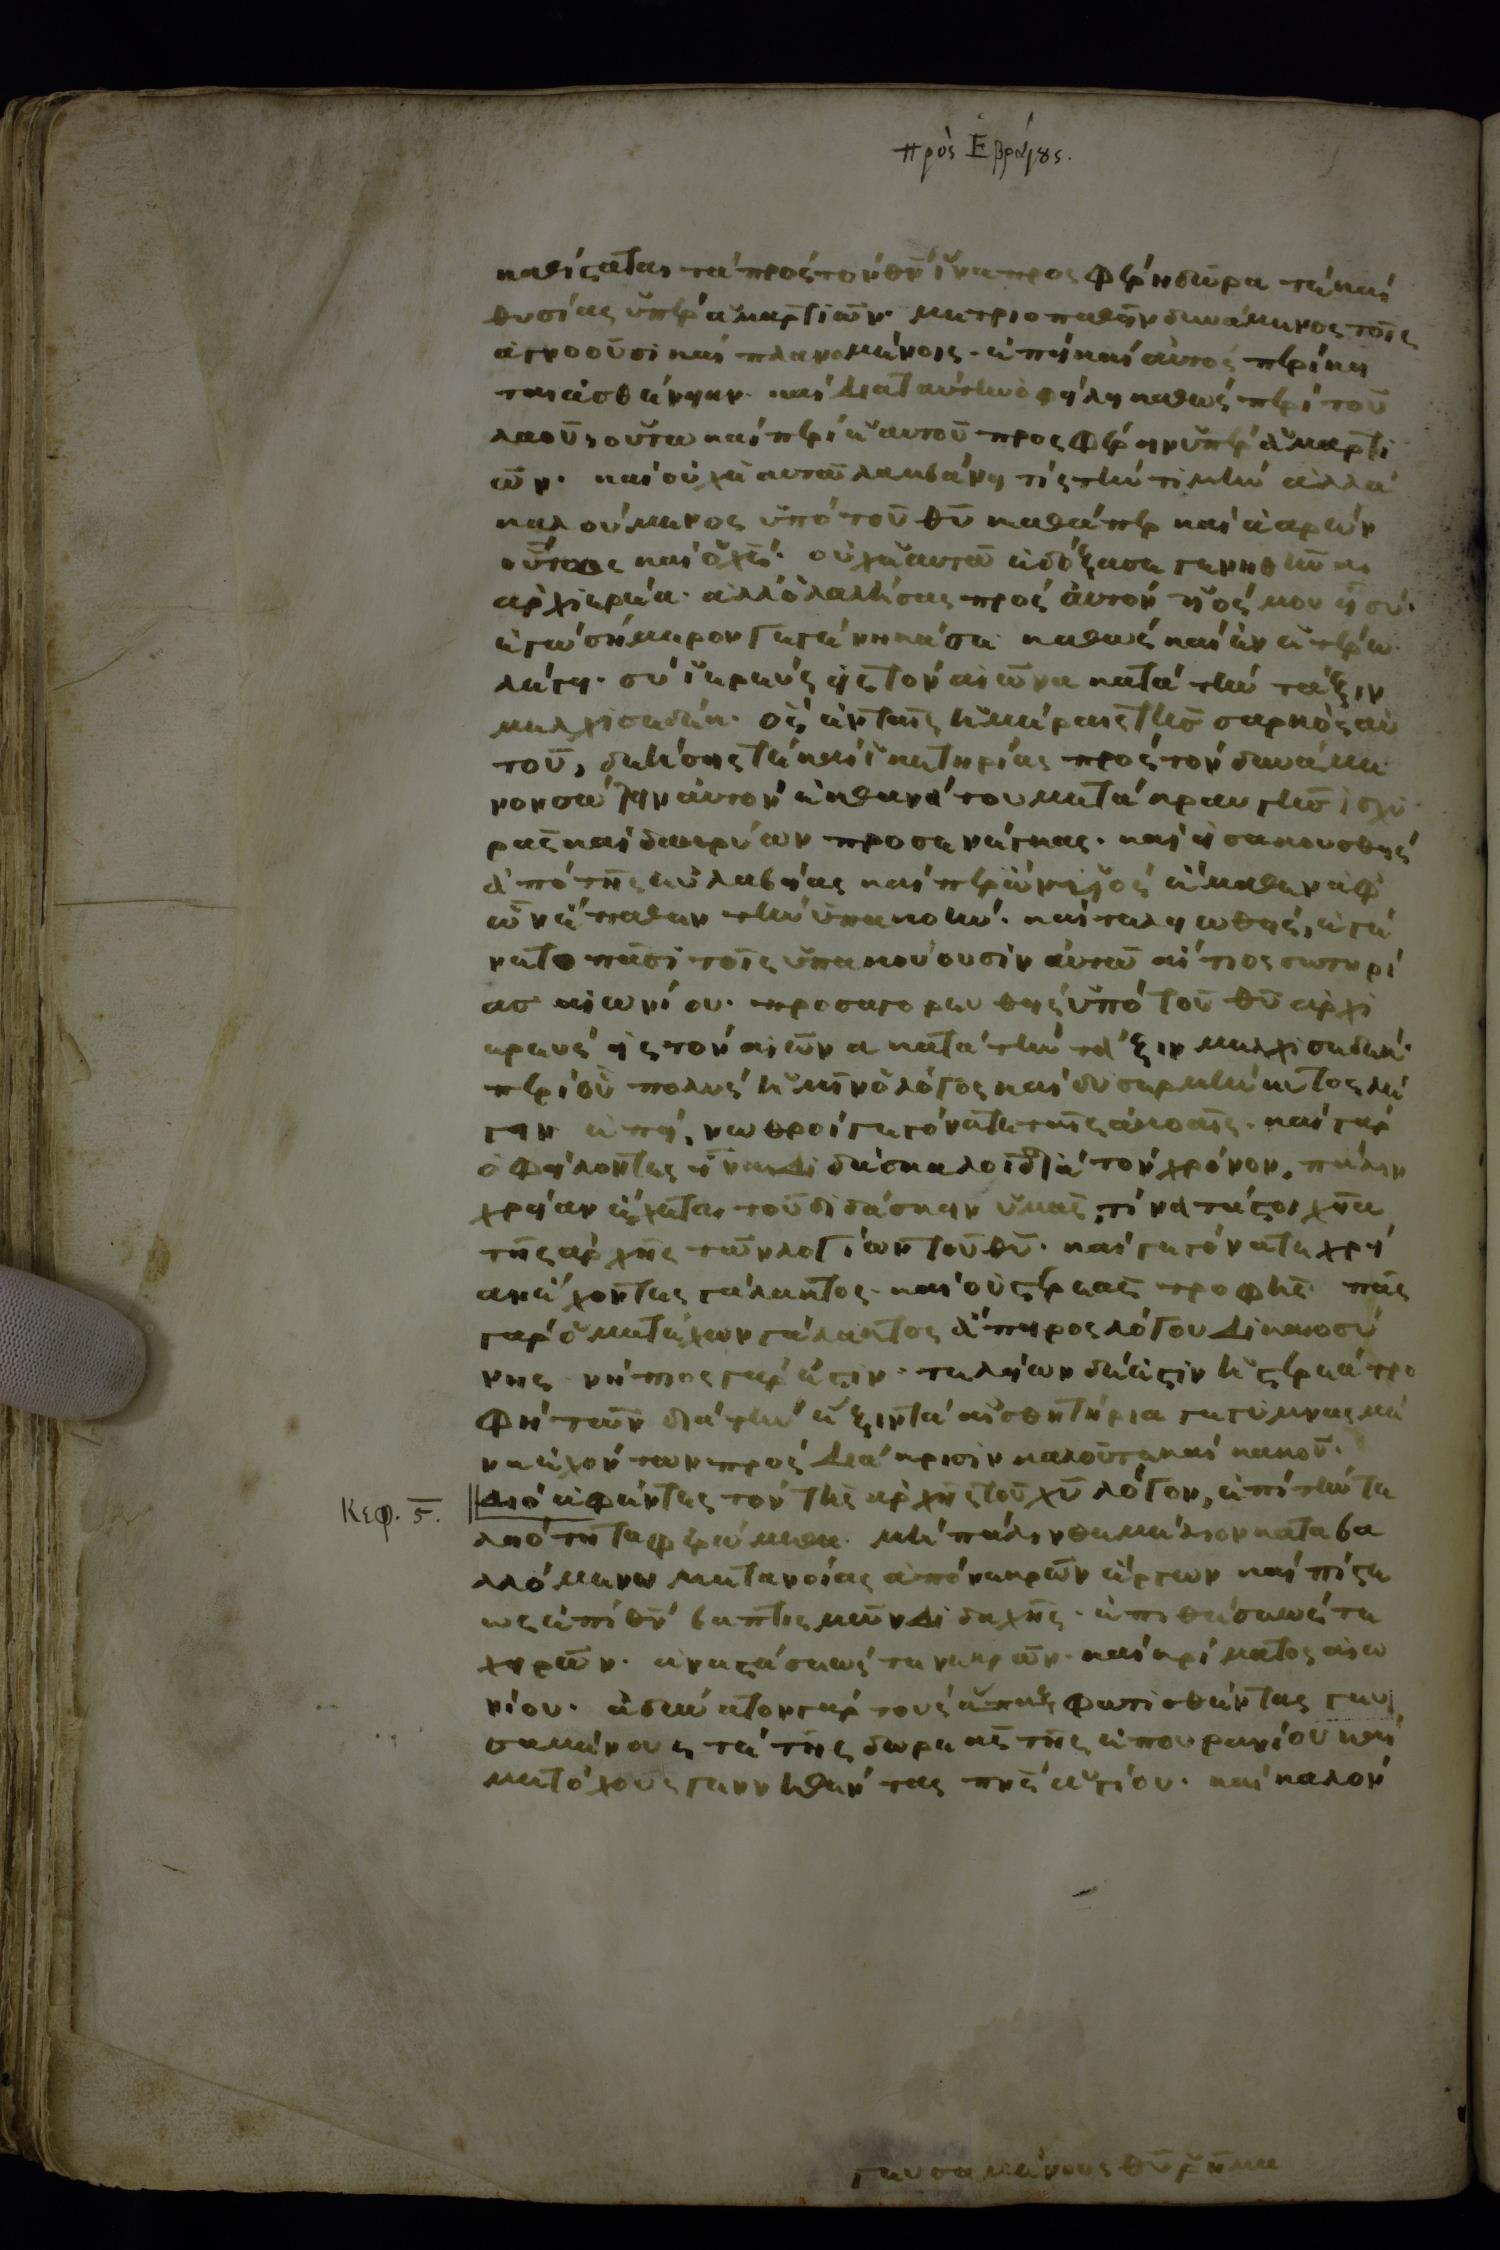 πρὸς Ἑβραίους.
καθίσταται τὰ πρὸς τὸν θν ἵνα προσφέρη δῶρά τε καὶ
θυσίας ὑπὲρ ἁμαρτιῶν. μετριοπαθεῖν δυνάμενος τοῖς
ἀγνοοῦσι καὶ πλανομένοις. ἐπεὶ καὶ αὐτὸς περίκει
ται ἀσθένειαν. καὶ διὰ ταύτην ὀφείλει καθὼς περὶ τοῦ
λαοῦ, οὕτω καὶ περὶ ἑαυτοῦ προσφέρειν ὑπὲρ ἁμαρτι
ῶν. καὶ οὐχ ἑαυτῶ λαμβάνει τίς τὴν τιμὴν ἀλλὰ
καλούμενος ὑπὸ τοῦ θυ καθάπερ καὶ ἀαρών
οὕτως καὶ ὁ χς. οὐχ ἑαυτὸν ἐδόξασε γεννηθῆναι
ἀρχιερέα. ἀλλ ὁ λαλήσας πρὸς αὐτόν υἱός μου εἶ σύ.
ἐγὼ σήμερον γεγέννηκά σε καθὼς καὶ ἐν ἑτέρω
λέγει. σὺ ἱερεὺς εἰς τὸν αἰῶνα κατὰ τὴν τάξιν
μελχισεδέκ. ὃς ἐν ταῖς ἡμέραις τῆς σαρκὸς αὐ
τοῦ, δεήσεις τε καὶ ἱκετηρίας πρὸς τὸν δυνάμε
νον σώζειν αὐτὸν ἐκ θανάτου μετὰ κραυγῆς ἰσχυ
ρᾶς καὶ δακρύων προσενέγκας. καὶ εἰσακουσθεὶς
ἀπὸ τῆς εὐλαβείας καίπερ ὢν υἱός ἔμαθεν ἀφ
ὧν ἔπαθεν τὴν ὑπακοήν. καὶ τελειωθείς, ἐγέ
νετο πᾶσι τοῖς ὑπακούουσιν αὐτῶ αἴτιος σωτηρί
ας αἰωνίου. προσαγορευθεὶς ὑπὸ τοῦ θυ ἀρχι
ερεὺς εἰς τὸν αἰῶνα κατὰ τὴν τάξιν μελχισεδέκ.
περὶ οὗ πολὺς ἡμῖν ὁ λόγος καὶ δυσερμήνευτος λέ
γειν ἐπεί, νωθροὶ γεγόνατε ταῖς ἀκοαῖς. καὶ γὰρ
ὀφείλοντες εἶναι διδάσκαλοι διὰ τὸν χρόνον, πάλιν
χρείαν ἔχετε τοῦ διδάσκειν ὑμᾶς, τίνα τὰ στοιχεῖα
τῆς ἀρχῆς τῶν λογίων τοῦ θυ. καὶ γεγόνατε χρεί
αν ἔχοντες γάλακτος. καὶ οὐ στερεᾶς τροφῆς πᾶς
γὰρ ὁ μετέχων γάλακτος ἄπειρος λόγου δικαιοσύ
νης νήπιος γάρ ἐστιν. τελείων δέ ἐστιν ἡ στερεὰ τρο
φὴ τῶν διὰ τὴν ἕξιν τὰ αἰσθητήρια γεγυμνασμέ
να ἐχόντων πρὸς διάκρισιν καλοῦ τε καὶ κακοῦ.
Κεφ. ς. Διὸ ἀφέντες τὸν τῆς ἀρχῆς τοῦ χυ λόγον, ἐπὶ τὴν τε
λειότητα φερώμεθα. μὴ πάλιν θεμέλιον καταβα
λλόμενοι μετανοίας ἀπὸ νεκρῶν ἔργων καὶ πίστε
ως ἐπὶ θν βαπτισμῶν διδαχῆς. ἐπιθέσεώς τε
χειρῶν. ἀναστάσεώς τε νεκρῶν. καὶ κρίματος αἰω
νίου. ἀδύνατον γὰρ τοὺς ἅπαξ φωτισθέντας γευ
σαμένους τε τῆς δωρεᾶς τῆς ἐπουρανίου καὶ
μετόχους γεννηθέντας πνς ἁγίου. καὶ καλὸν
γευσαμένους θυ ῥῆμα